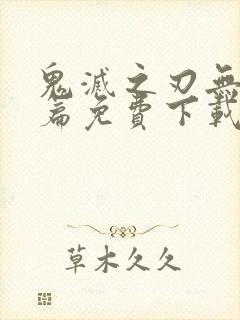 鬼滅之刃無
篇免費下載
草木久久